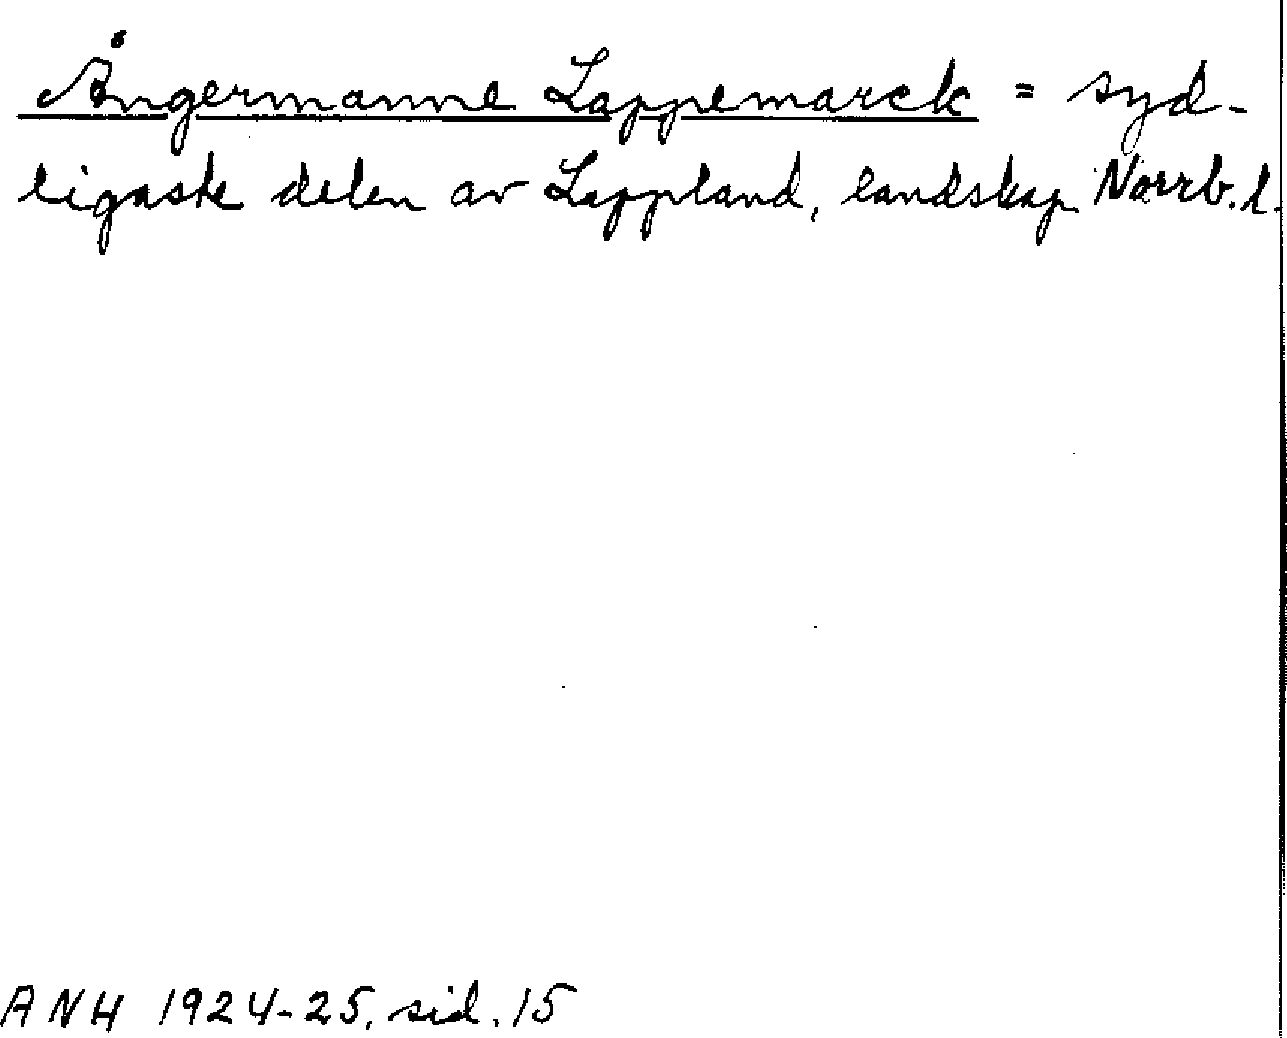 Ångermanne Lappemarck = syd-
ligaste delen av Lappland, landskap Norrb. l.
ANH 1924-25, sid. 15